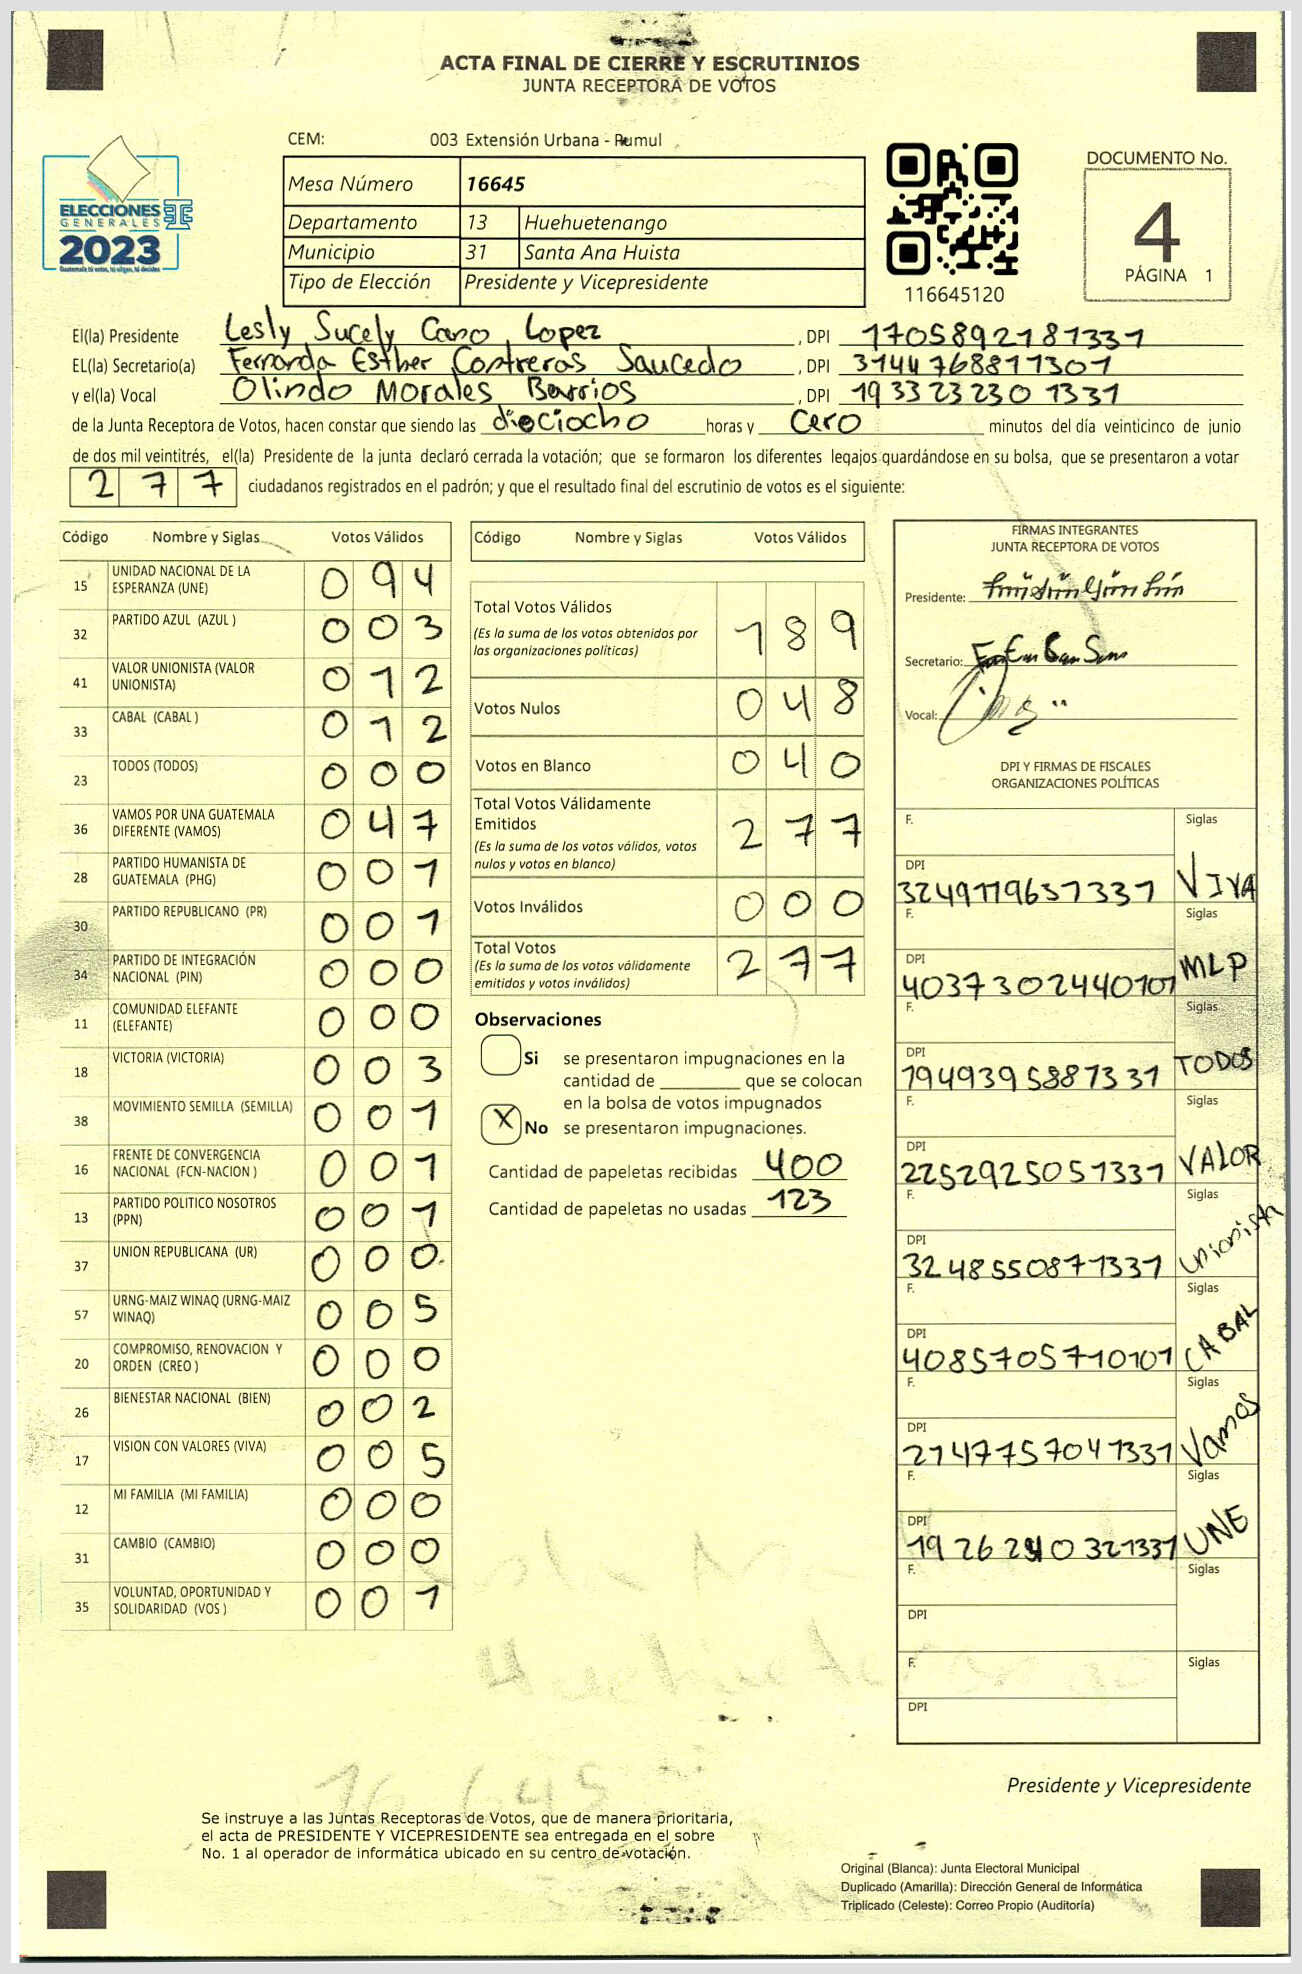 ACTA FINAL DE CIERRE Y ESCRUTINIOS
JUNTA RECEPTORA DE VOTOS
CEM: 003 Extensión Urbana - Pumul
Mesa Número 16645
Departamento 13 Huehuetenango
Municipio 31 Santa Ana Huista
Tipo de Elección Presidente y Vicepresidente
ELECCIONES
GENERALES
2023
Guatemala tú votas, tú eliges, tú decides
116645120
DOCUMENTO No.
4
PÁGINA 1
El(la) Presidente Lesly Sucely Cano Lopez, DPI 1705892181331
EL(la) Secretario(a) Fernanda Esther Contreras Saucedo, DPI 3144768811301
y el(la) Vocal Olindo Morales Barrios, DPI 1933232301331
de la Junta Receptora de Votos, hacen constar que siendo las dieciocho horas y Cero minutos del día veinticinco de junio
de dos mil veintitrés, el(la) Presidente de la junta declaró cerrada la votación; que se formaron los diferentes legajos guardándose en su bolsa, que se presentaron a votar
277 ciudadanos registrados en el padrón; y que el resultado final del escrutinio de votos es el siguiente:
Código Nombre y Siglas Votos Válidos
15 UNIDAD NACIONAL DE LA ESPERANZA (UNE) 094
32 PARTIDO AZUL (AZUL ) 003
41 VALOR UNIONISTA (VALOR UNIONISTA) 012
33 CABAL (CABAL ) 012
23 TODOS (TODOS) 000
36 VAMOS POR UNA GUATEMALA DIFERENTE (VAMOS) 047
28 PARTIDO HUMANISTA DE GUATEMALA (PHG) 001
30 PARTIDO REPUBLICANO (PR) 001
34 PARTIDO DE INTEGRACIÓN NACIONAL (PIN) 000
11 COMUNIDAD ELEFANTE (ELEFANTE) 000
18 VICTORIA (VICTORIA) 003
38 MOVIMIENTO SEMILLA (SEMILLA) 001
16 FRENTE DE CONVERGENCIA NACIONAL (FCN-NACION ) 001
13 PARTIDO POLITICO NOSOTROS (PPN) 001
37 UNION REPUBLICANA (UR) 000
57 URNG-MAIZ WINAQ (URNG-MAIZ WINAQ) 005
20 COMPROMISO, RENOVACION Y ORDEN (CREO ) 000
26 BIENESTAR NACIONAL (BIEN) 002
17 VISION CON VALORES (VIVA) 005
12 MI FAMILIA (MI FAMILIA) 000
31 CAMBIO (CAMBIO) 000
35 VOLUNTAD, OPORTUNIDAD Y SOLIDARIDAD (VOS ) 001
Código Nombre y Siglas Votos Válidos
Total Votos Válidos 189
(Es la suma de los votos obtenidos por
las organizaciones políticas)
Votos Nulos 048
Votos en Blanco 040
Total Votos Válidamente
Emitidos 277
(Es la suma de los votos válidos, votos
nulos y votos en blanco)
Votos Inválidos 000
Total Votos 277
(Es la suma de los votos válidamente
emitidos y votos inválidos)
Observaciones
Si se presentaron impugnaciones en la
cantidad de ________ que se colocan
en la bolsa de votos impugnados
X No se presentaron impugnaciones.
Cantidad de papeletas recibidas 400
Cantidad de papeletas no usadas 123
FIRMAS INTEGRANTES
JUNTA RECEPTORA DE VOTOS
Presidente:
Secretario:
Vocal:
DPI Y FIRMAS DE FISCALES
ORGANIZACIONES POLÍTICAS
F. Siglas
DPI 3249119651331 VIVA
F. Siglas
DPI 4037302440101 MLP
F. Siglas
DPI 1949395881331 TODOS
F. Siglas
DPI 2252925051331 VALOR
F. Siglas
DPI 3248550871331 Unionista
F. Siglas
DPI 4085705710101 CABAL
F. Siglas
DPI 2147757041331 Vamos
F. Siglas
DPI UNE
F. Siglas
DPI
F. Siglas
DPI
Presidente y Vicepresidente
16645
Se instruye a las Juntas Receptoras de Votos, que de manera prioritaria,
el acta de PRESIDENTE Y VICEPRESIDENTE sea entregada en el sobre
No. 1 al operador de informática ubicado en su centro de votación.
Original (Blanca): Junta Electoral Municipal
Duplicado (Amarilla): Dirección General de Informática
Triplicado (Celeste): Correo Propio (Auditoría)